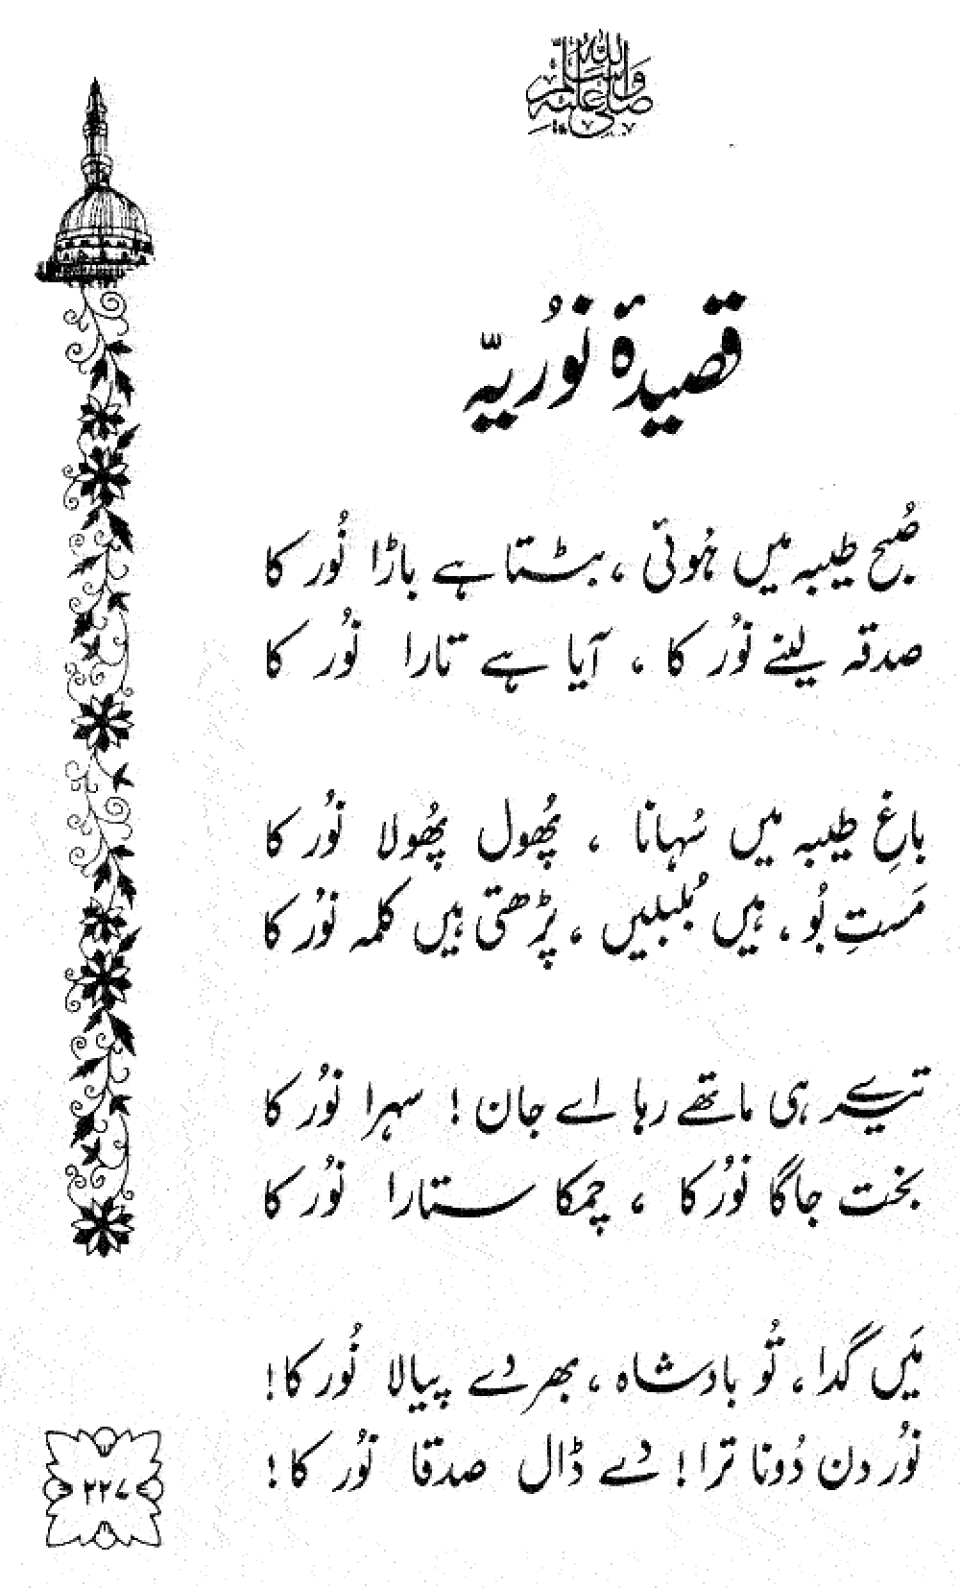 صلی اللہ علیہ وآلہ وسلم
قصیدۂ نُوریّہ
صُبح طیبہ میں ہُوئی ، بٹتا ہے باڑا نُور کا
صدقہ لینے نُور کا ، آیا ہے تارا نُور کا
باغِ طیبہ میں سُہانا ، پھُول پھُولا نُور کا
مَستِ بُو ، ہیں بُلبلیں ، پڑھتی ہیں کلمہ نُور کا
تیرے ہی ماتھے رہا اے جان ! سہرا نُور کا
بخت جاگا نُور کا ، چمکا ستارا نُور کا
مَیں گدا ، تُو بادشاہ ، بھر دے پیالا نُور کا !
نُور دن دُونا ترا ! دے ڈال صدقا نُور کا !
۲۲۷